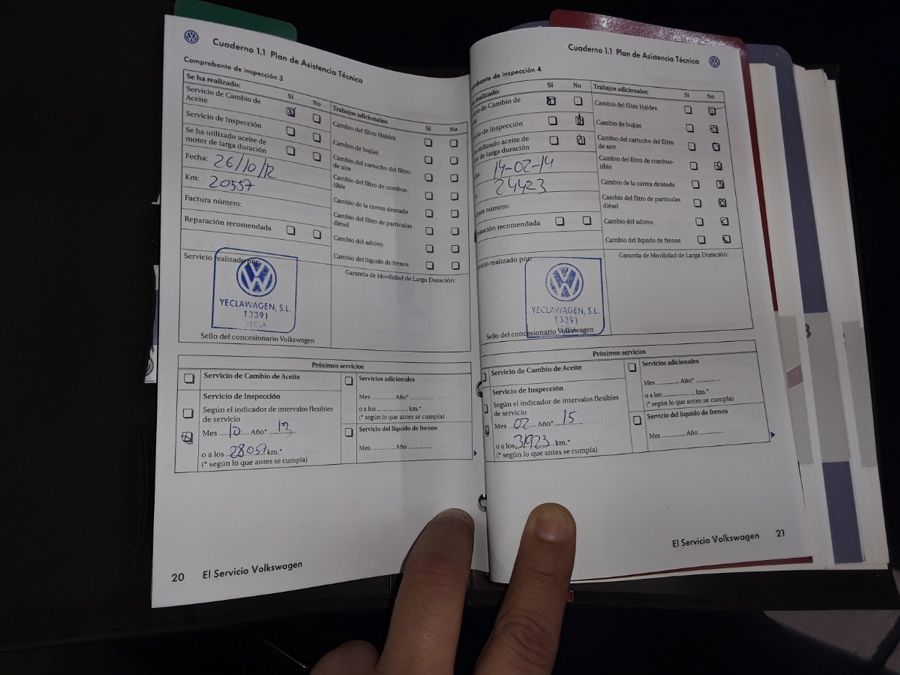 Cuaderno 1.1 Plan de Asistencia Técnica
Comprobante de inspección 3
Se ha realizado:
Sí No
Servicio de Cambio de
Aceite
Servicio de Inspección
Se ha utilizado aceite de
motor de larga duración
Fecha: 26/10/12
Km: 20557
Factura número:
Reparación recomendada
Trabajos adicionales:
Sí No
Cambio del filtro Haldex
Cambio de bujías
Cambio del cartucho del filtro
de aire
Cambio del filtro de combus-
tible
Cambio de la correa dentada
Cambio del filtro de partículas
diésel
Cambio del aditivo
Cambio del líquido de frenos
Servicio realizado por:
YECLAWAGEN, S.L.
13391
YECLA
Sello del concesionario Volkswagen
Garantía de Movilidad de Larga Duración:
Próximos servicios
Servicio de Cambio de Aceite
Servicio de Inspección
Según el indicador de intervalos flexibles
de servicio
Mes 10 Año* 13
o a los 28057 km.*
(* según lo que antes se cumpla)
Servicios adicionales
Mes Año*
o a los km.*
(* según lo que antes se cumpla)
Servicio del líquido de frenos
Mes Año
20 El Servicio Volkswagen
Cuaderno 1.1 Plan de Asistencia Técnica
obante de inspección 4
realizado:
Sí No
o de Cambio de
cio de Inspección
utilizado aceite de
or de larga duración
14-02-14
24423
número:
ración recomendada
Trabajos adicionales:
Sí No
Cambio del filtro Haldex
Cambio de bujías
Cambio del cartucho del filtro
de aire
Cambio del filtro de combus-
tible
Cambio de la correa dentada
Cambio del filtro de partículas
diésel
Cambio del aditivo
Cambio del líquido de frenos
icio realizado por:
YECLAWAGEN, S.L.
13391
Sello del concesionario Volkswagen
Garantía de Movilidad de Larga Duración:
Próximos servicios
Servicio de Cambio de Aceite
Servicio de Inspección
Según el indicador de intervalos flexibles
de servicio
Mes 02 Año* 15
o a los 31923 km.*
(* según lo que antes se cumpla)
Servicios adicionales
Mes Año*
o a los km.*
(* según lo que antes se cumpla)
Servicio del líquido de frenos
Mes Año
El Servicio Volkswagen 21